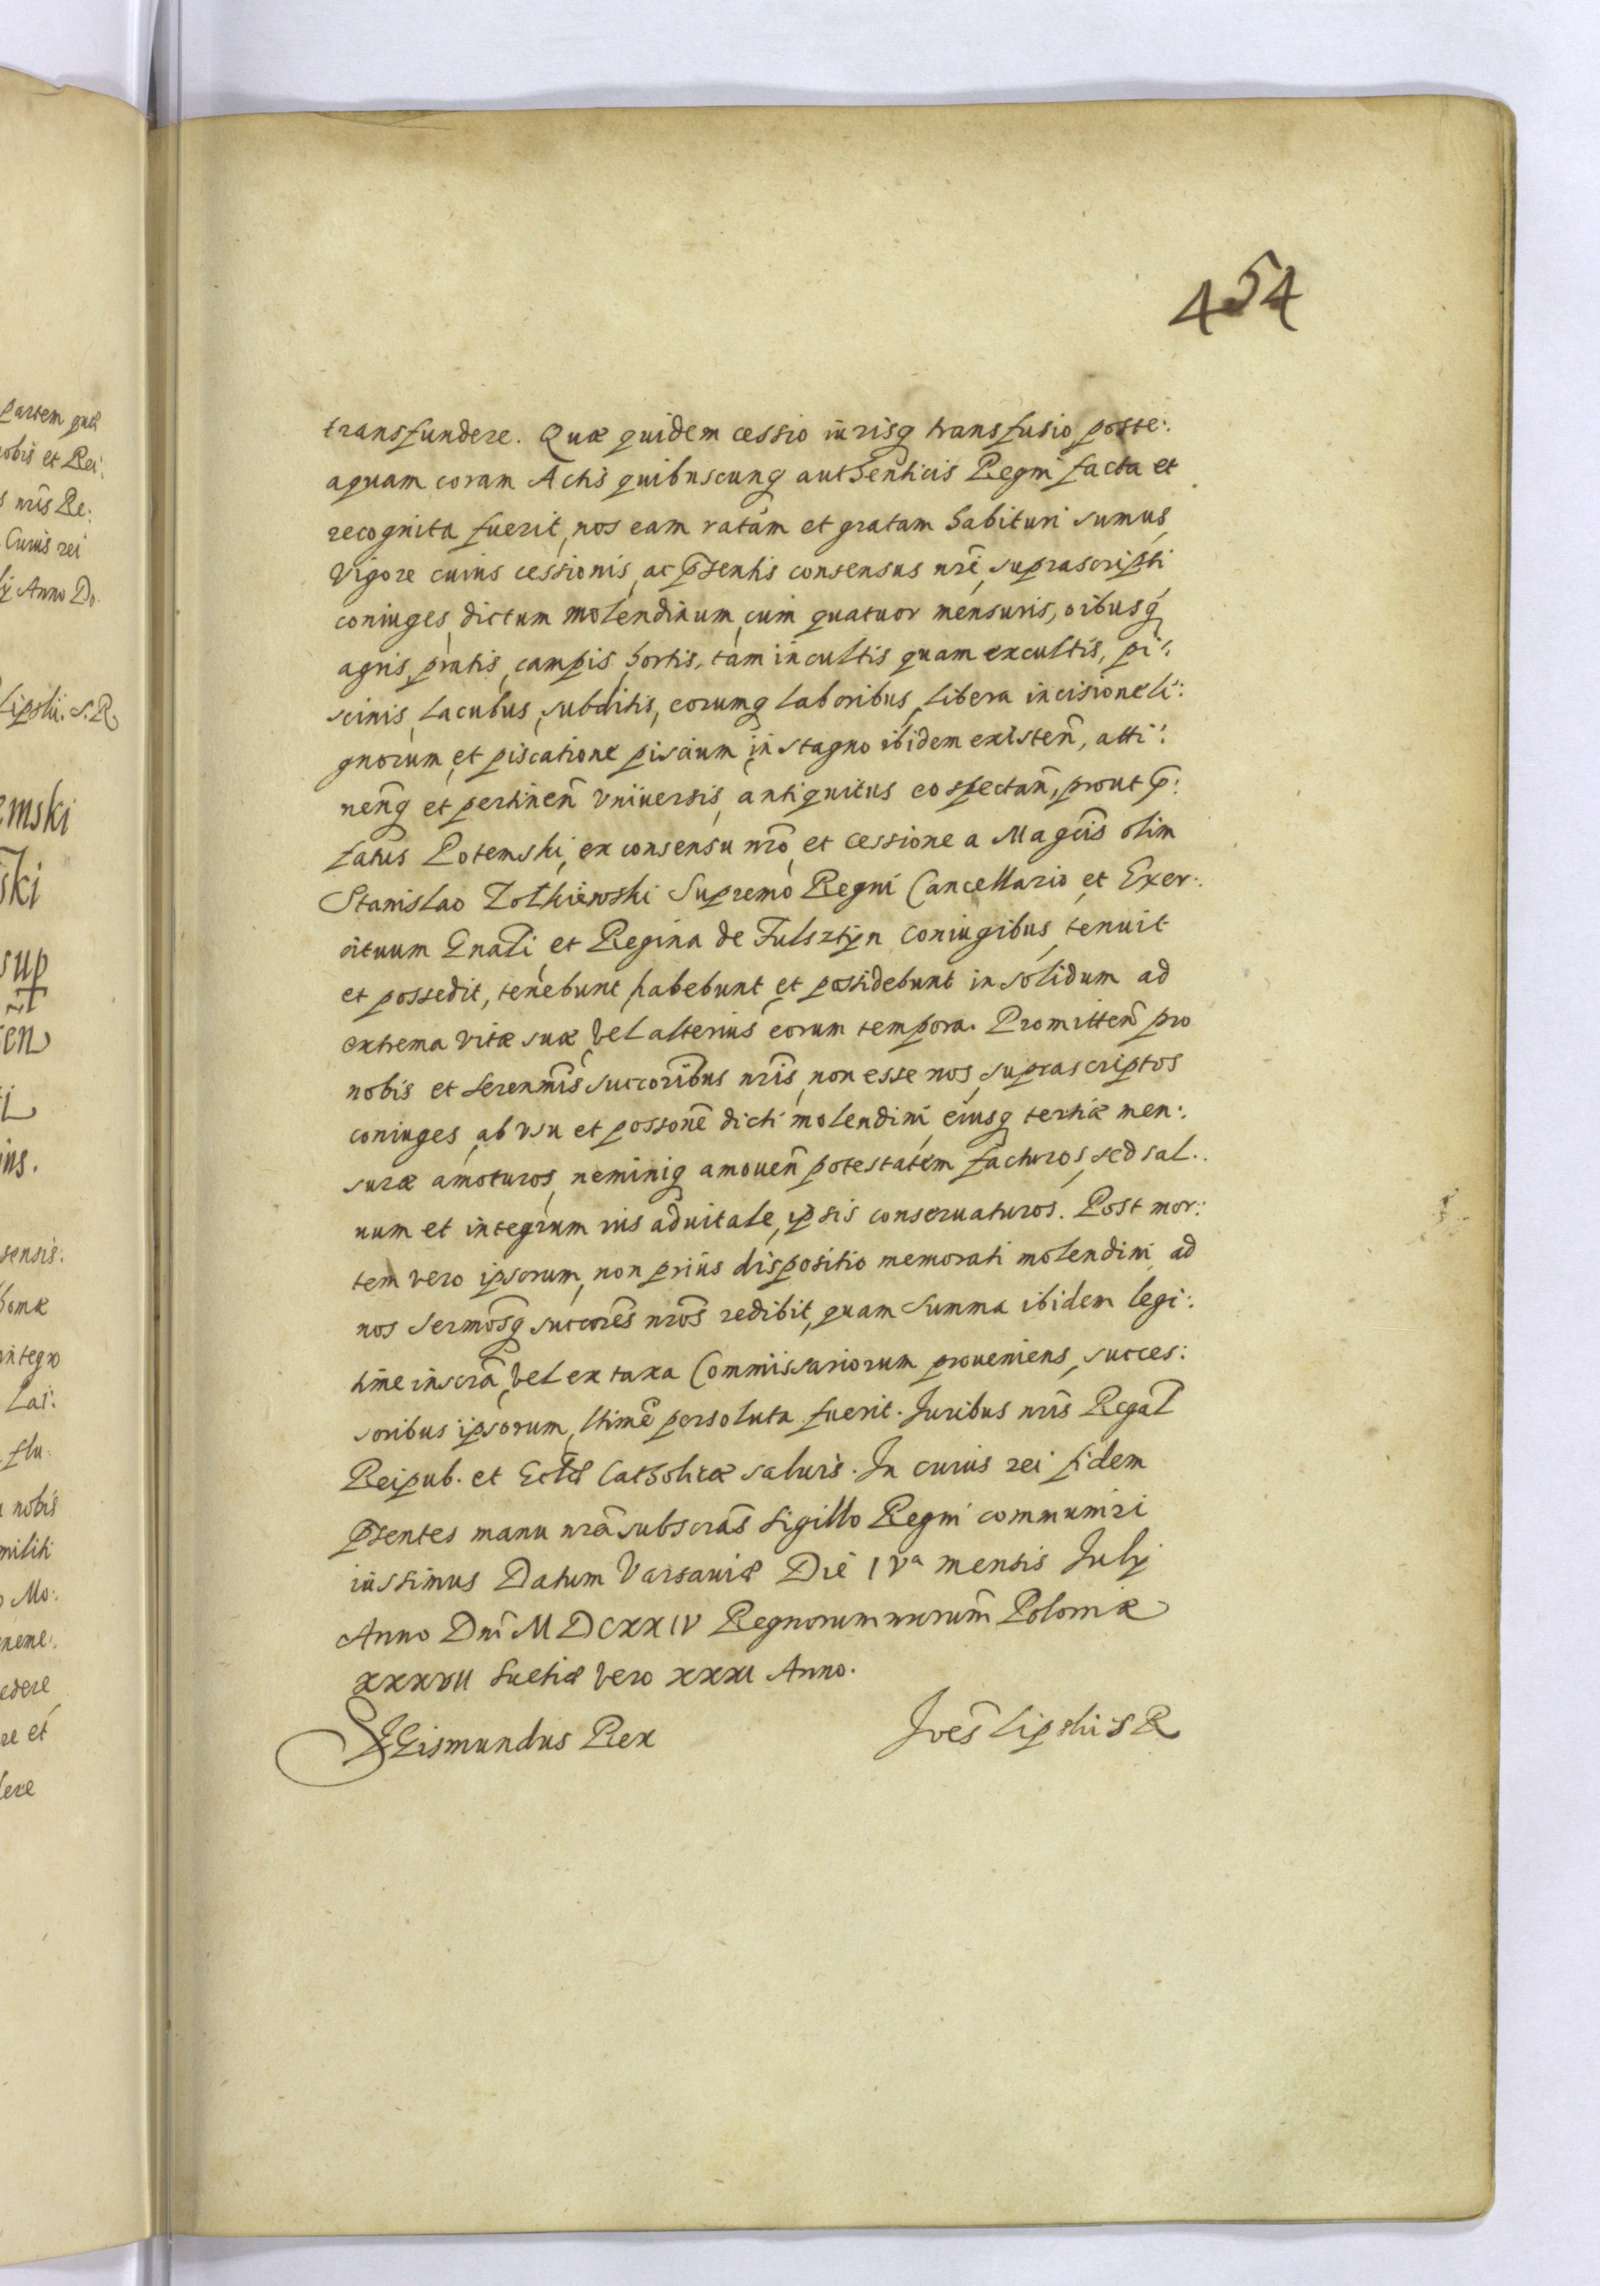 454
transfundere. Quæ quidem cessio iurisq̃ transfusio poste:
aquam coram Actis quibuscunq̃ authenticis Regni facta et
recognita fuerit, nos eam ratam et gratam habituri sumus,
Vigore cuius cessionis, ac p̃sentis consensus nr̃i, suprascripti
coniuges, dictum molendinum, cum quatuor mensuris, oibusq̃
agris, pratis, campis, hortis, tam incultis quam excultis, pi:
scinis, lacubus, subditis, eorumq̃ laboribus, libera incisione li:
gnorum, et piscatione piscium in stagno ibidem existeñ, atti:
neñq̃ et pertineñ vniuersis, antiquitus eo spectañ, prout p̃:
fatus Potemski, ex consensu nr̃o, et cessione a Magcis olim
Stanislao Zolkiewski Supremo Regni Cancellario, et Exer:
cituum Gnali, et Regina de Fulsztyn coniugibus, tenuit
et possedit, tenebunt, habebunt et possidebunt in solidum ad
extrema vitæ suæ, vel alterius eorum tempora. Promitteñ pro
nobis et serenmis succoribus nr̃is, non esse nos, suprascriptos
coniuges, ab vsu et possone dicti molendini, eiusq̃ tertiæ men:
suræ amoturos, neminiq̃ amoueñ potestatem facturos, sed sal:
uum et integrum ius aduitale, ipsis conseruaturos. Post mor:
tem vero ipsorum, non prius dispositio memorati molendini ad
nos sermosq̃ succores nr̃os redibit, quam summa ibidem legi:
time inscra, vel ex taxa Commissariorum proueniens, succes:
soribus ipsorum, ltime persoluta fuerit. Juribus nr̃is Regal
Reipub. et Eccłæ Catholicæ saluis. In cuius rei fidem
p̃sentes manu nr̃a subscras sigillo Regni communiri
iussimus Datum Varsauiæ Die IVa mensis July
Anno Dni M DCXXIV Regnorum nrorum Poloniæ
XXXVII Suetiæ vero XXXI Anno.
Sigismundus Rex
Joes Lipski S R
partem
nobis et Rei:
nr̃is Re:
Cuius rei
Anno Do
Lipski. S. R
emski
ski
sup
en
ius.
sensis.
integro
Lai:
flu:
nobis
militi
Mo:
edere
re et